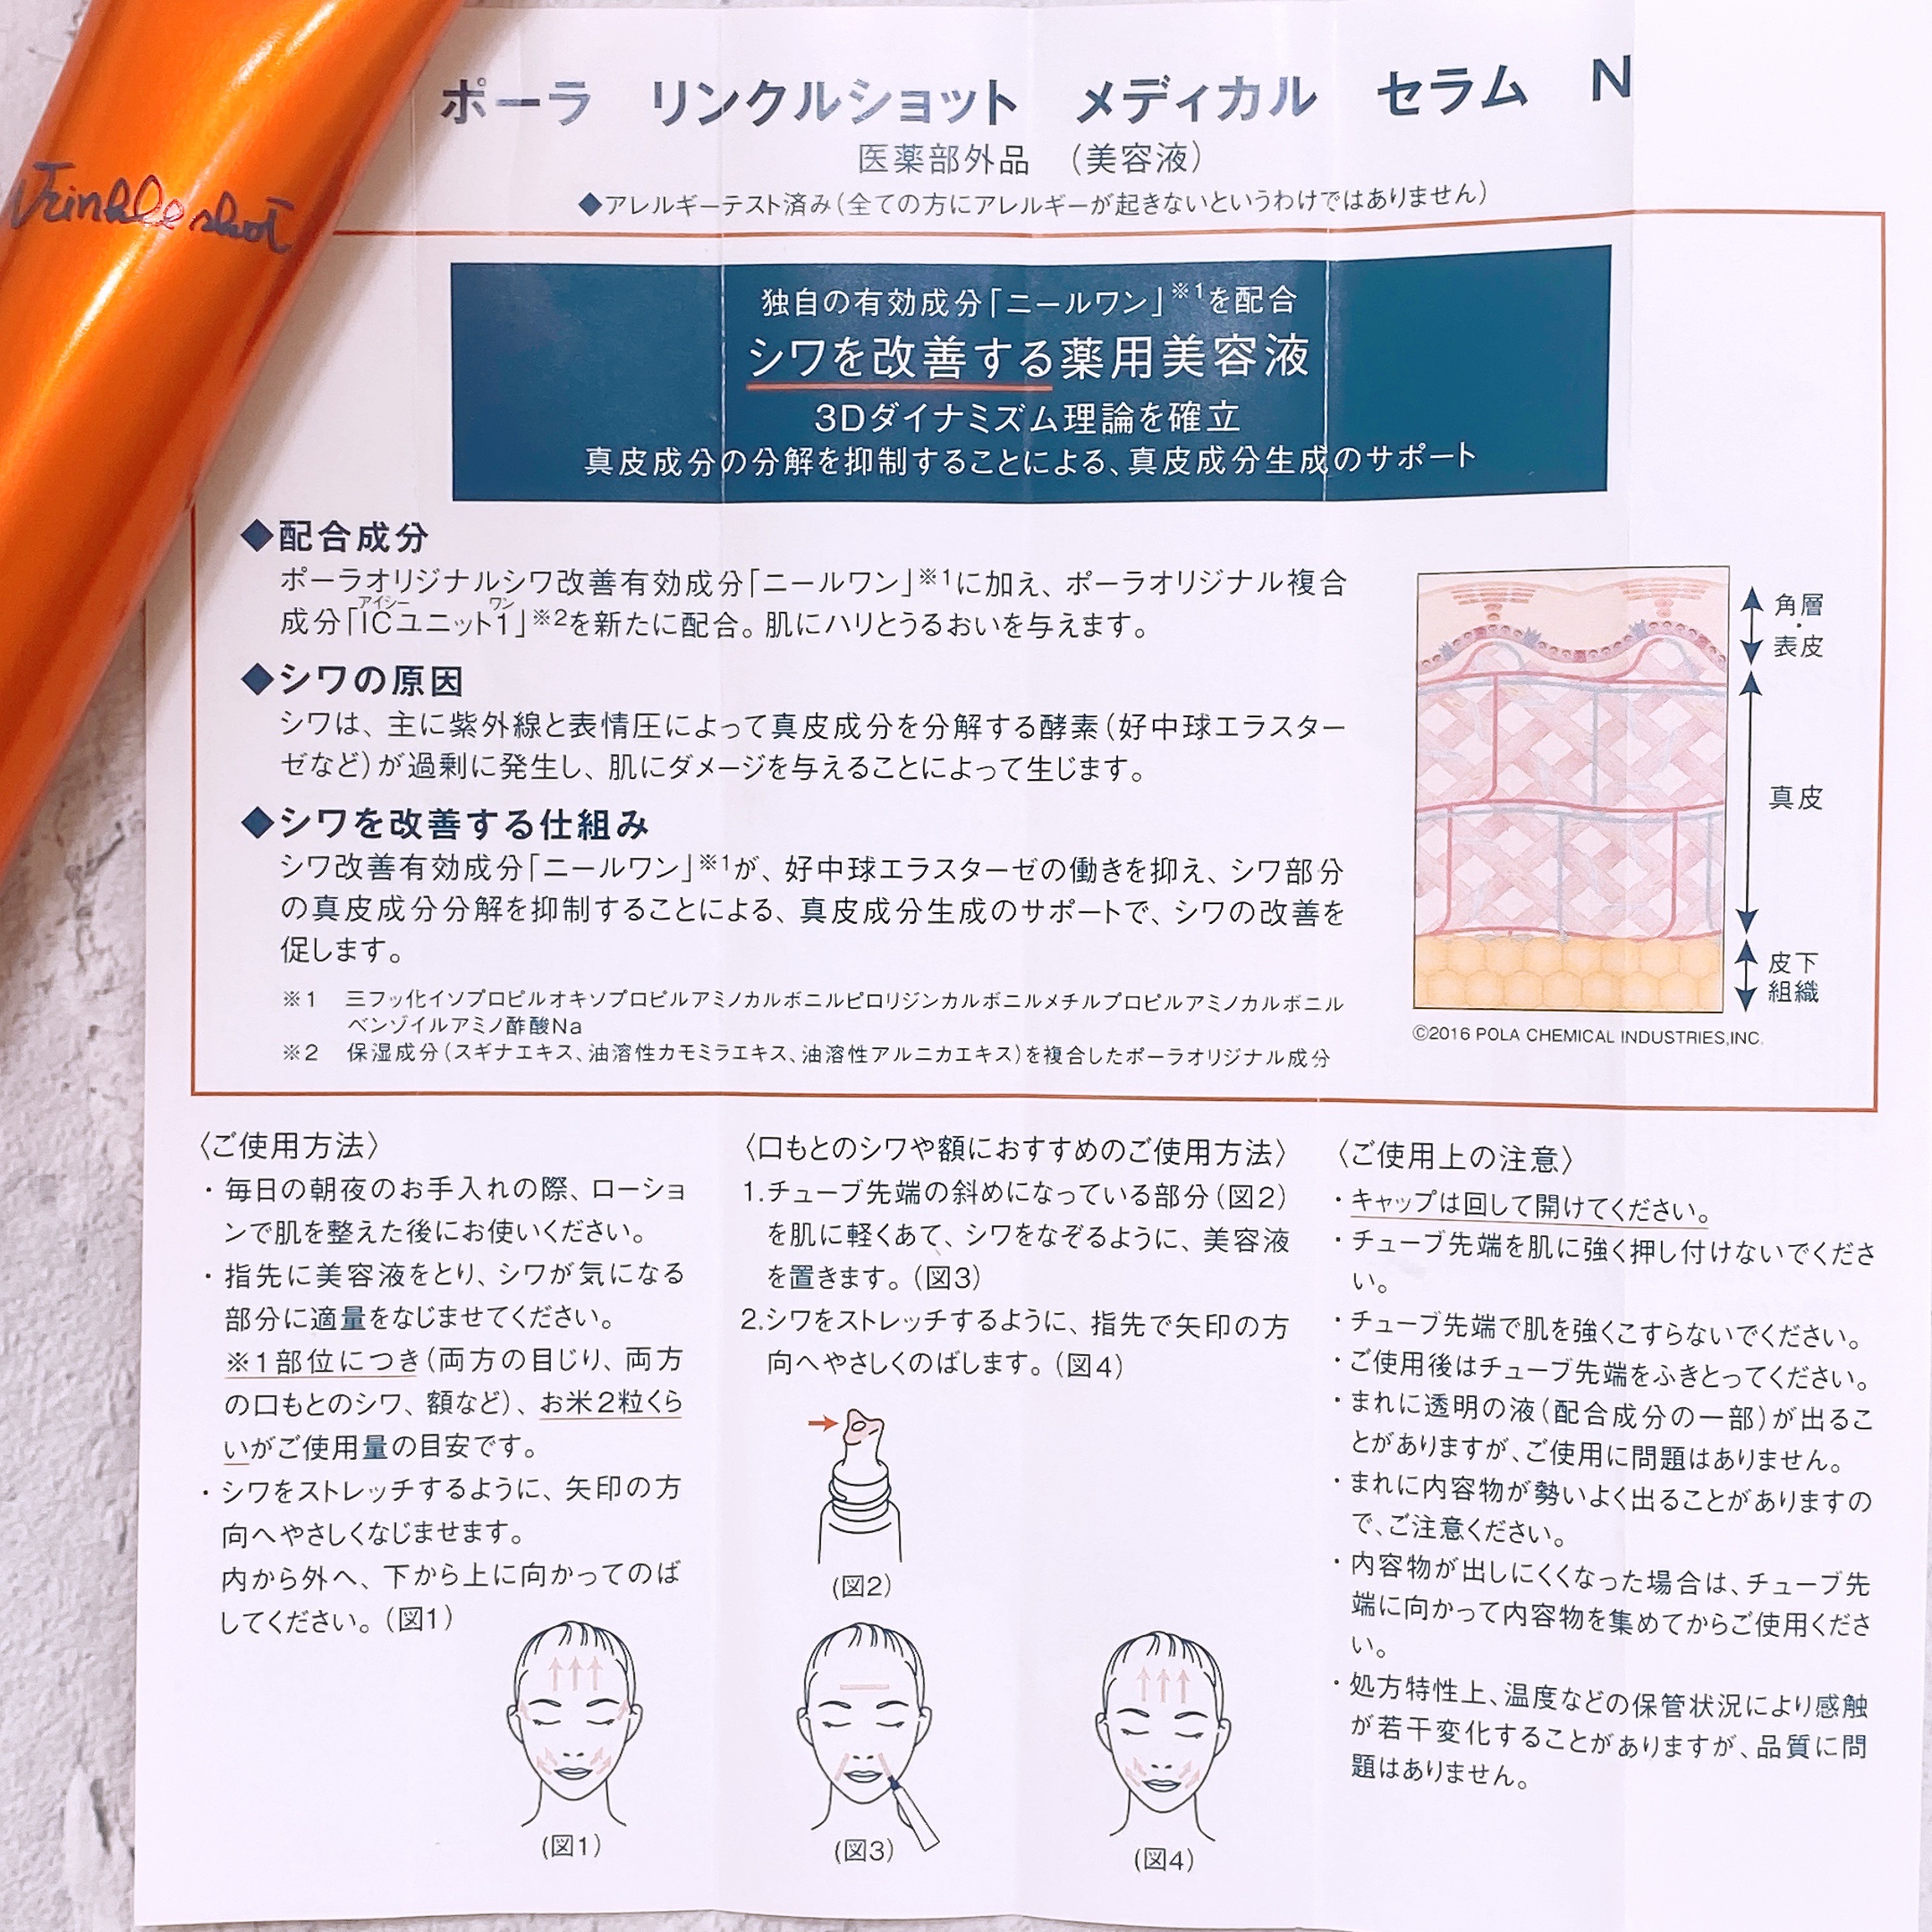 ポーラ　リンクルショット　メディカル　セラム　N
医薬部外品　(美容液)
◆アレルギーテスト済み(全ての方にアレルギーが起きないというわけではありません)
Wrinkle shot
独自の有効成分「ニールワン」※1を配合
シワを改善する薬用美容液
3Dダイナミズム理論を確立
真皮成分の分解を抑制することによる、真皮成分生成のサポート
◆配合成分
ポーラオリジナルシワ改善有効成分「ニールワン」※1に加え、ポーラオリジナル複合
アイシー　ワン
成分「ICユニット1」※2を新たに配合。肌にハリとうるおいを与えます。
◆シワの原因
シワは、主に紫外線と表情圧によって真皮成分を分解する酵素(好中球エラスター
ゼなど)が過剰に発生し、肌にダメージを与えることによって生じます。
◆シワを改善する仕組み
シワ改善有効成分「ニールワン」※1が、好中球エラスターゼの働きを抑え、シワ部分
の真皮成分分解を抑制することによる、真皮成分生成のサポートで、シワの改善を
促します。
※1　三フッ化イソプロピルオキソプロピルアミノカルボニルピロリジンカルボニルメチルプロピルアミノカルボニル
ベンゾイルアミノ酢酸Na
※2　保湿成分(スギナエキス、油溶性カモミラエキス、油溶性アルニカエキス)を複合したポーラオリジナル成分
角層
・
表皮
真皮
皮下
組織
©2016 POLA CHEMICAL INDUSTRIES,INC.
〈ご使用方法〉
・毎日の朝夜のお手入れの際、ローショ
ンで肌を整えた後にお使いください。
・指先に美容液をとり、シワが気になる
部分に適量をなじませてください。
※1部位につき(両方の目じり、両方
の口もとのシワ、額など)、お米2粒くら
いがご使用量の目安です。
・シワをストレッチするように、矢印の方
向へやさしくなじませます。
内から外へ、下から上に向かってのば
してください。(図1)
(図1)
〈口もとのシワや額におすすめのご使用方法〉
1.チューブ先端の斜めになっている部分(図2)
を肌に軽くあて、シワをなぞるように、美容液
を置きます。(図3)
2.シワをストレッチするように、指先で矢印の方
向へやさしくのばします。(図4)
(図2)
(図3)
(図4)
〈ご使用上の注意〉
・キャップは回して開けてください。
・チューブ先端を肌に強く押し付けないでくださ
い。
・チューブ先端で肌を強くこすらないでください。
・ご使用後はチューブ先端をふきとってください。
・まれに透明の液(配合成分の一部)が出るこ
とがありますが、ご使用に問題はありません。
・まれに内容物が勢いよく出ることがありますの
で、ご注意ください。
・内容物が出しにくくなった場合は、チューブ先
端に向かって内容物を集めてからご使用くださ
い。
・処方特性上、温度などの保管状況により感触
が若干変化することがありますが、品質に問
題はありません。